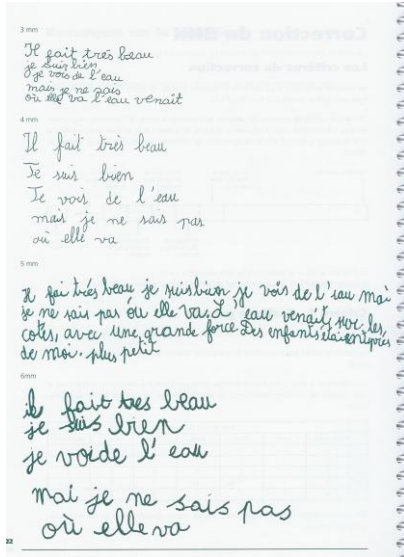 3 mm
Il fait très beau
je suis bien
je vois de l'eau
mais je ne sais
où elle va l'eau venait
4 mm
Il fait très beau
Je suis bien
Je vois de l'eau
mais je ne sais pas
où elle va
5 mm
Il fai trés beau je suis bien je vois de l'eau mai
je ne sais pas óu elle va. L'eau venait, sur les
cotes, avec une grande force Des enfants étaient près
de moi. plus petit
6mm
il fait tres beau
je suis bien
je voide l'eau
mai je ne sais pas
où elle va
22